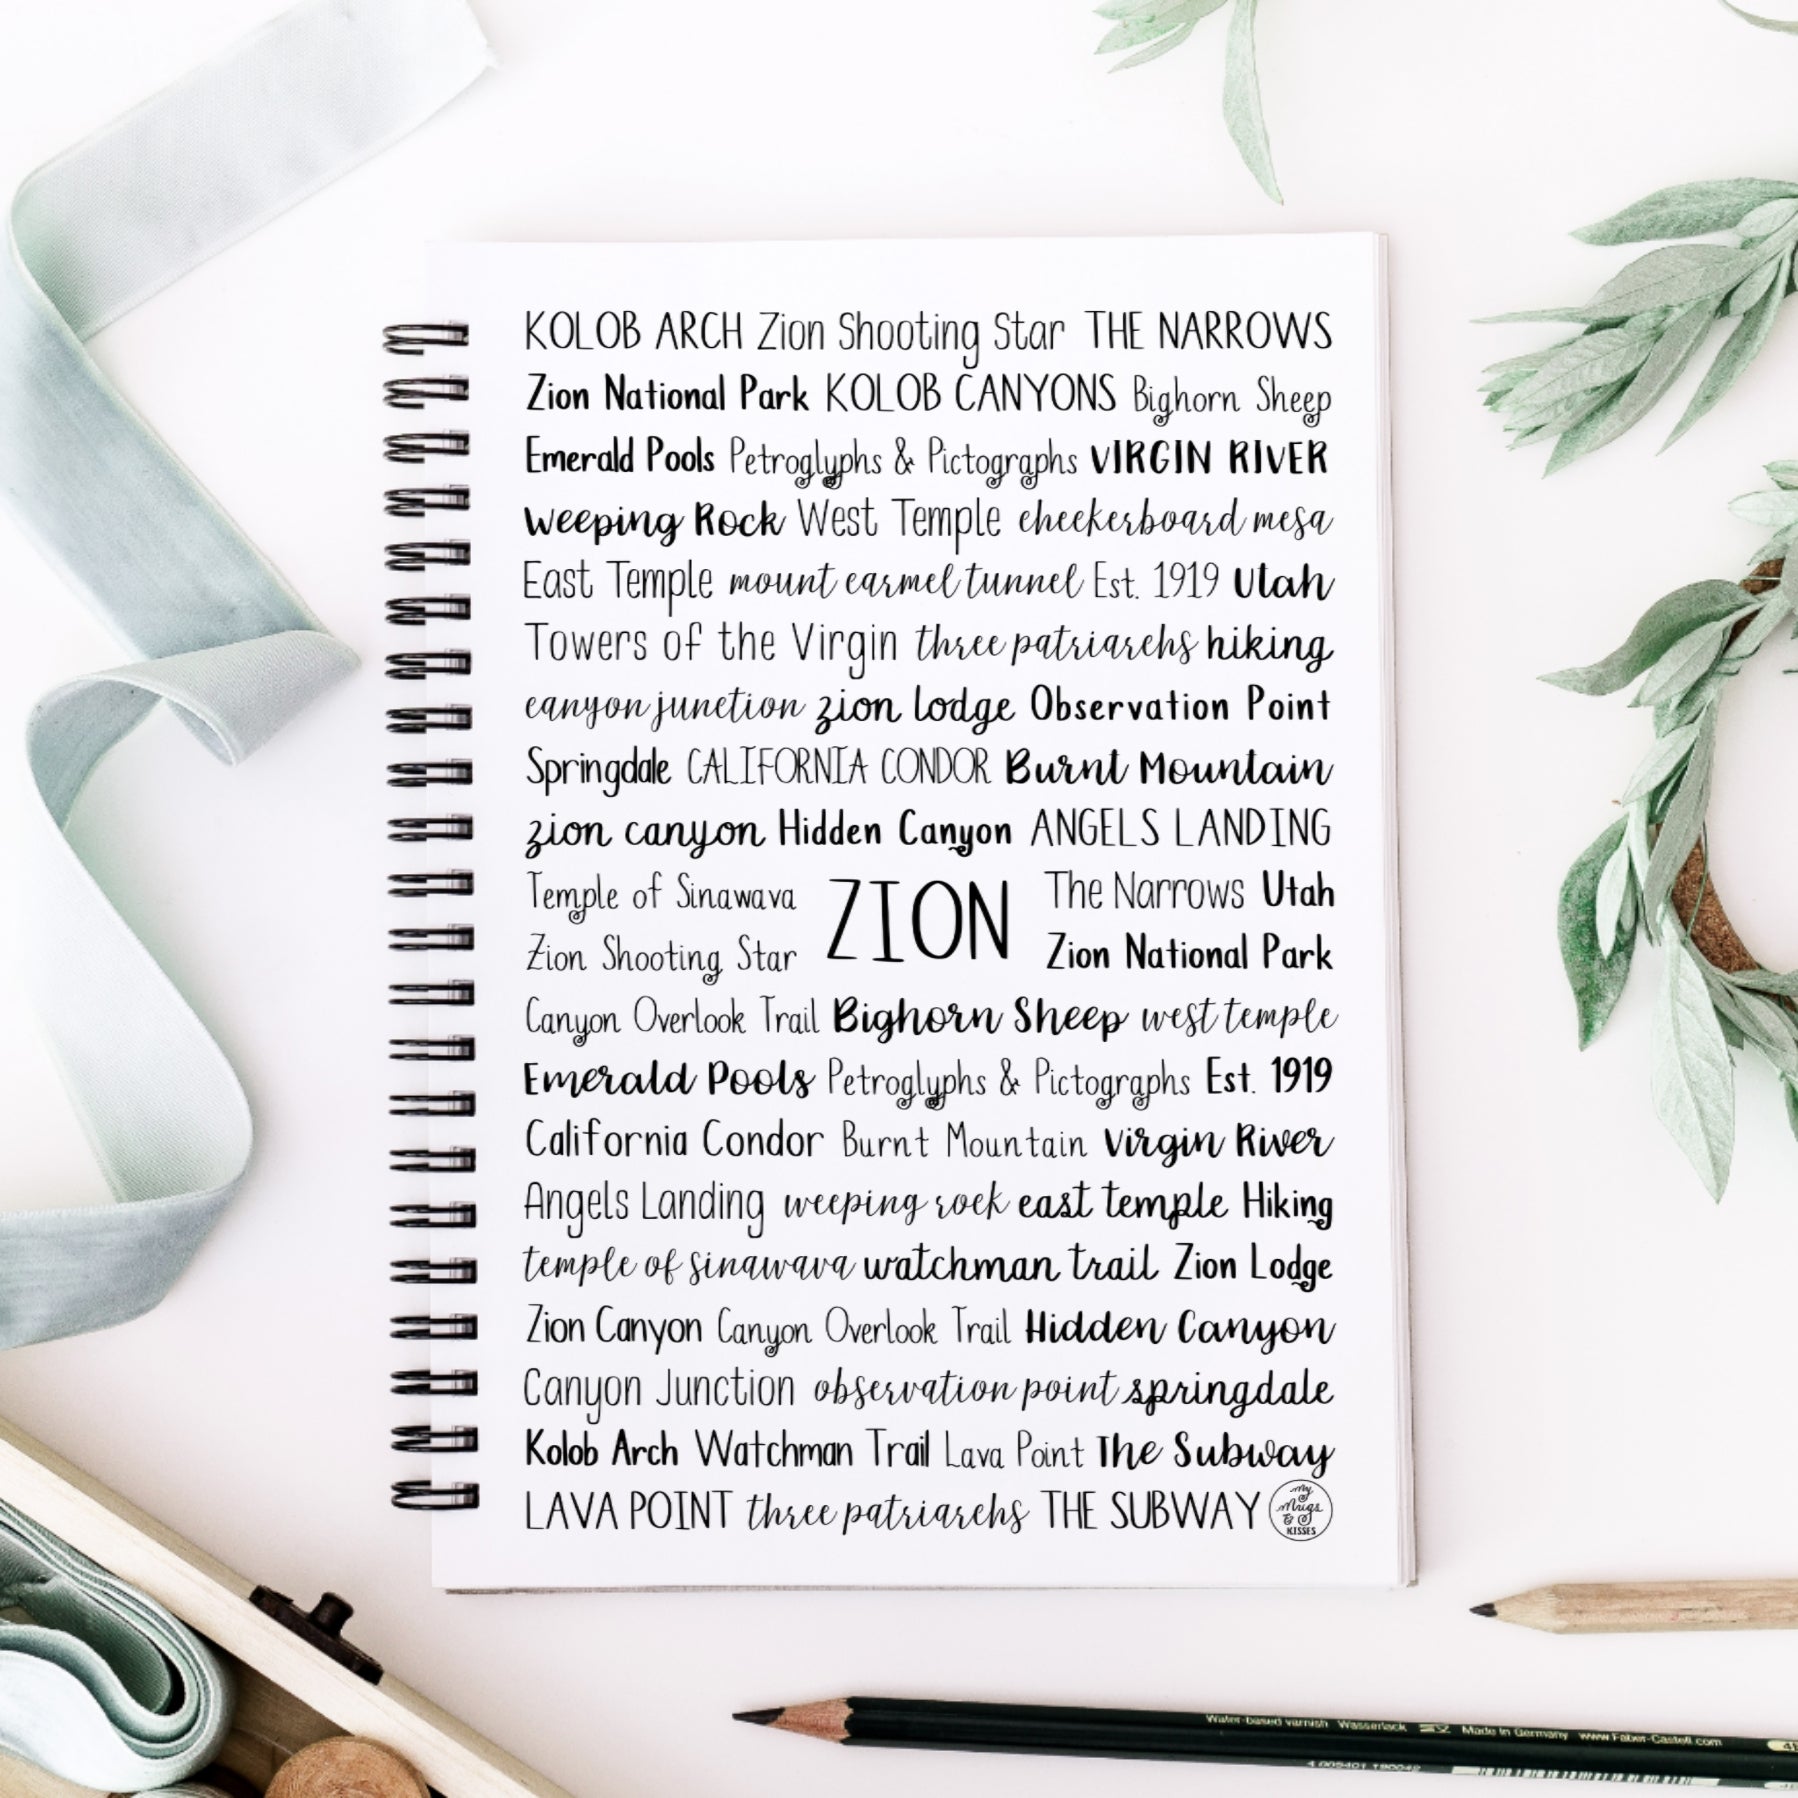 KOLOB ARCH Zion Shooting Star THE NARROWS
Zion National Park KOLOB CANYONS Bighorn Sheep
Emerald Pools Petroglyphs & Pictographs VIRGIN RIVER
Weeping Rock West Temple checkerboard mesa
East Temple mount carmel tunnel Est. 1919 Utah
Towers of the Virgin three patriarchs hiking
canyon junction zion lodge Observation Point
Springdale CALIFORNIA CONDOR Burnt Mountain
zion canyon Hidden Canyon ANGELS LANDING
Temple of Sinawava ZION The Narrows Utah
Zion Shooting Star Zion National Park
Canyon Overlook Trail Bighorn Sheep west temple
Emerald Pools Petroglyphs & Pictographs Est. 1919
California Condor Burnt Mountain Virgin River
Angels Landing weeping rock east temple Hiking
temple of sinawava watchman trail Zion Lodge
Zion Canyon Canyon Overlook Trail Hidden Canyon
Canyon Junction observation point springdale
Kolob Arch Watchman Trail Lava Point The Subway
LAVA POINT three patriarchs THE SUBWAY
my
Mugs
&
KISSES
Water-based varnish Wasserlack Made in Germany www.Faber-Castell.com
4 005401 190042